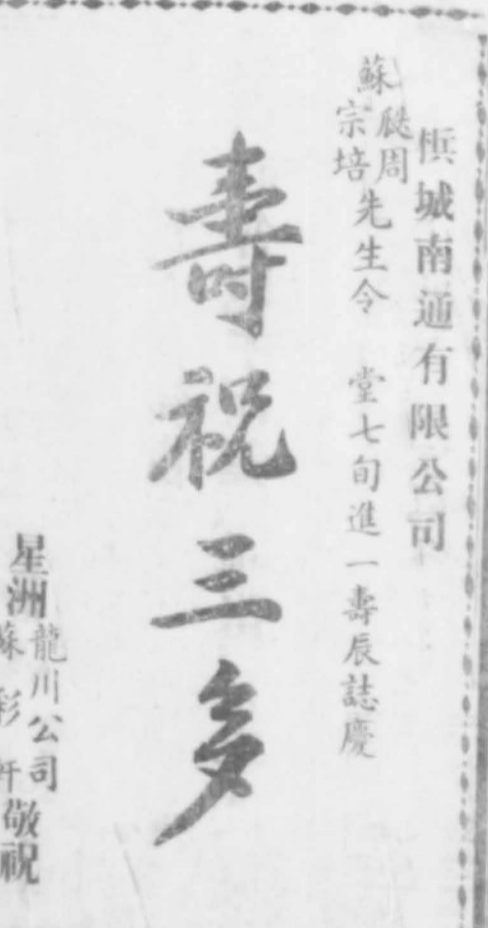 檳城南通有限公司
蘇宗培周先生令 堂七旬進一壽辰誌慶
壽祝三多
星洲
龍川公司
蘇彩軒
敬祝